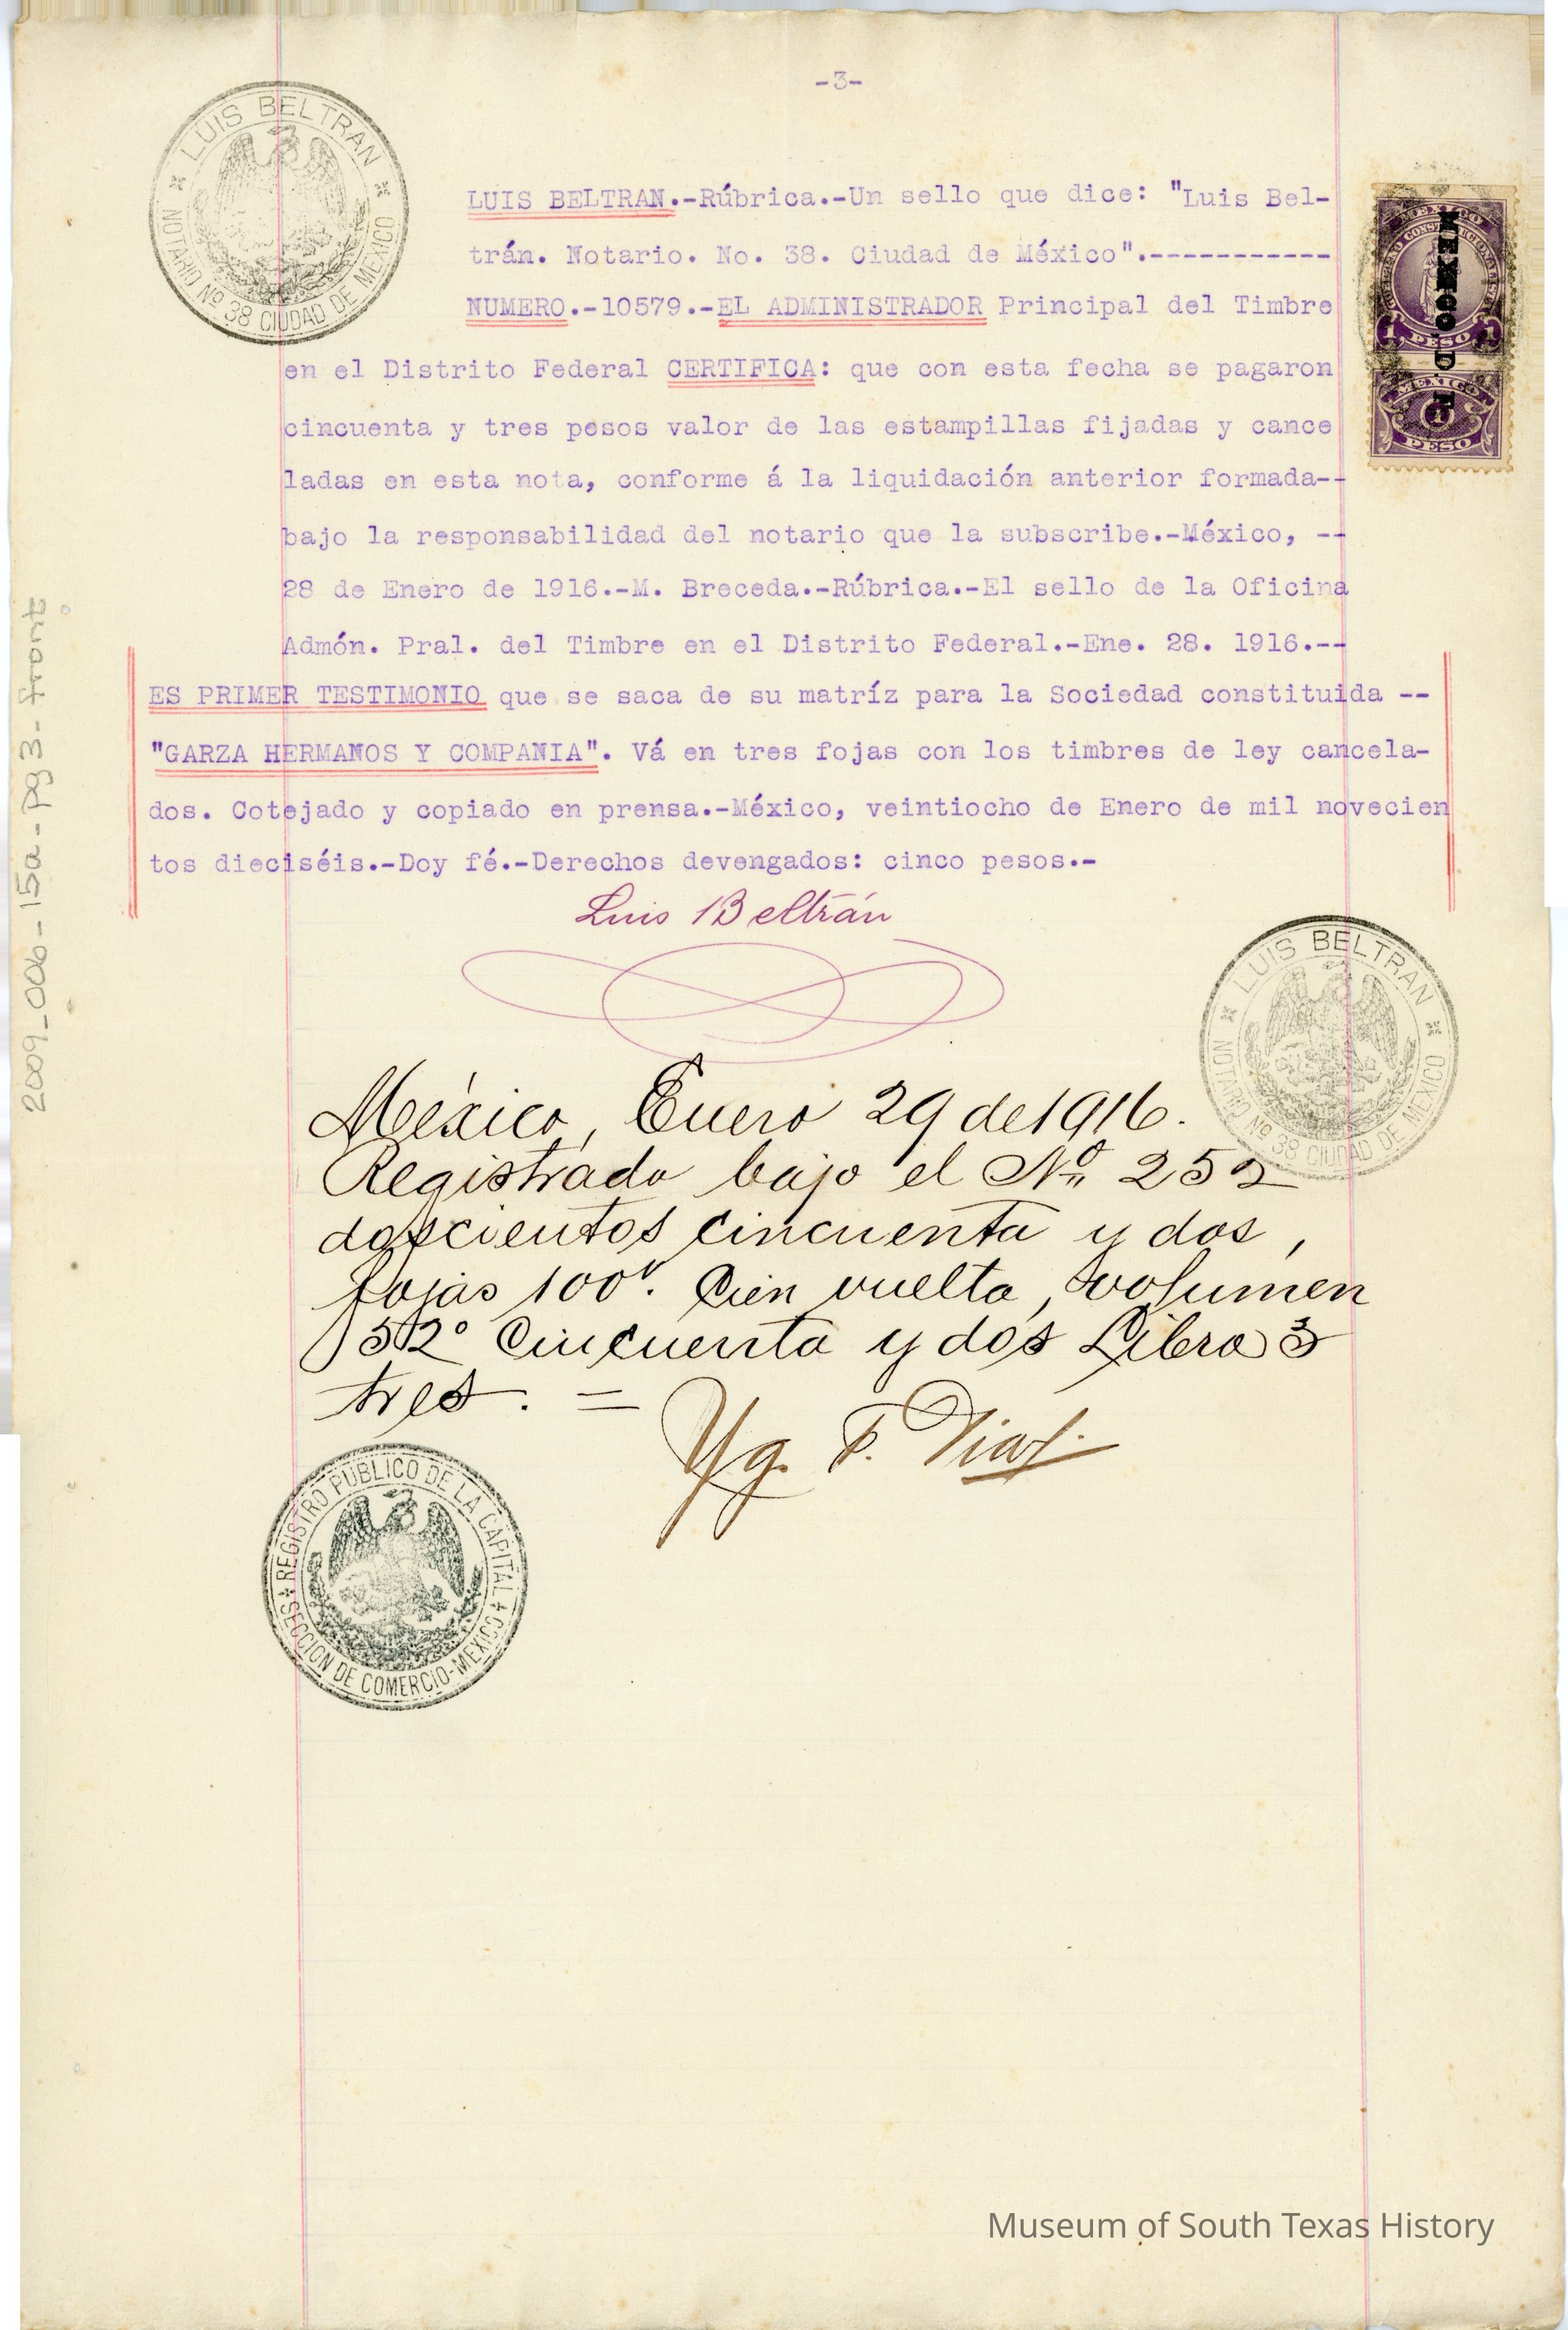 -3-
LUIS BELTRAN
NOTARIO Nº 38 CIUDAD DE MEXICO
LUIS BELTRAN.-Rúbrica.-Un sello que dice: "Luis Bel-
trán. Notario. No. 38. Ciudad de México".-----------
NUMERO.-10579.-EL ADMINISTRADOR Principal del Timbre
en el Distrito Federal CERTIFICA: que con esta fecha se pagaron
cincuenta y tres pesos valor de las estampillas fijadas y cance
ladas en esta nota, conforme á la liquidación anterior formada--
bajo la responsabilidad del notario que la subscribe.-México, --
28 de Enero de 1916.-M. Breceda.-Rúbrica.-El sello de la Oficina
Admón. Pral. del Timbre en el Distrito Federal.-Ene. 28. 1916.--
ES PRIMER TESTIMONIO que se saca de su matríz para la Sociedad constituida --
"GARZA HERMANOS Y COMPANIA". Vá en tres fojas con los timbres de ley cancela-
dos. Cotejado y copiado en prensa.-México, veintiocho de Enero de mil novecien
tos dieciséis.-Doy fé.-Derechos devengados: cinco pesos.-
MEXICO
1 PESO 1
MEXICO, D. F.
MEXICO
PESO
2009_006-15a-pg3-front
Luis Beltrán
LUIS BELTRAN
NOTARIO Nº 38 CIUDAD DE MEXICO
México, Enero 29 de 1916.
Registrado bajo el Nº 252
doscientos cincuenta y dos,
fojas 100v. cien vuelta, volumen
52º cincuenta y dos Libro 3
tres. =
Yg. F. Diaz
REGISTRO PUBLICO DE LA CAPITAL
SECCION DE COMERCIO-MEXICO
Museum of South Texas History